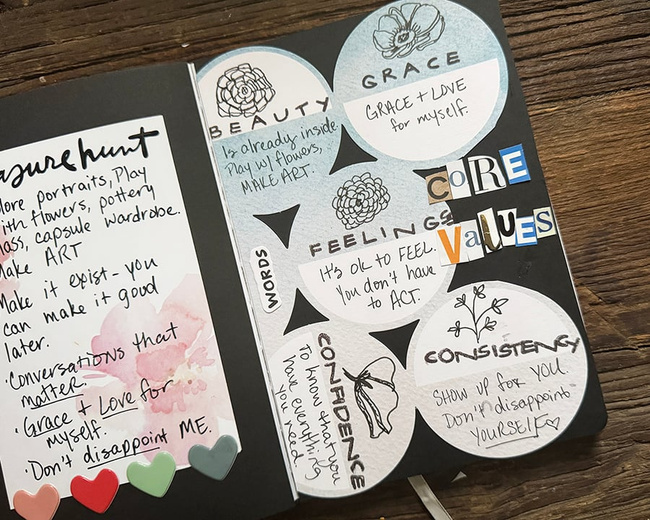 hunt
More portraits, Play
with flowers, pottery
class, capsule wardrobe.
Make ART
Make it exist - you
can make it good
later.
· Conversations that
matter.
· Grace + Love for
myself.
· Don't disappoint ME.
BEAUTY
Is already inside
Play w/ flowers,
MAKE ART.
GRACE
GRACE + LOVE
for myself.
CORE
VaLUES
FEELINGS
It's ok to FEEL.
You don't have
to ACT.
WORDS
CONFIDENCE
To know that you
have everything
you need.
CONSISTENCY
SHOW UP FOR YOU.
Don't disappoint
YOURSELF